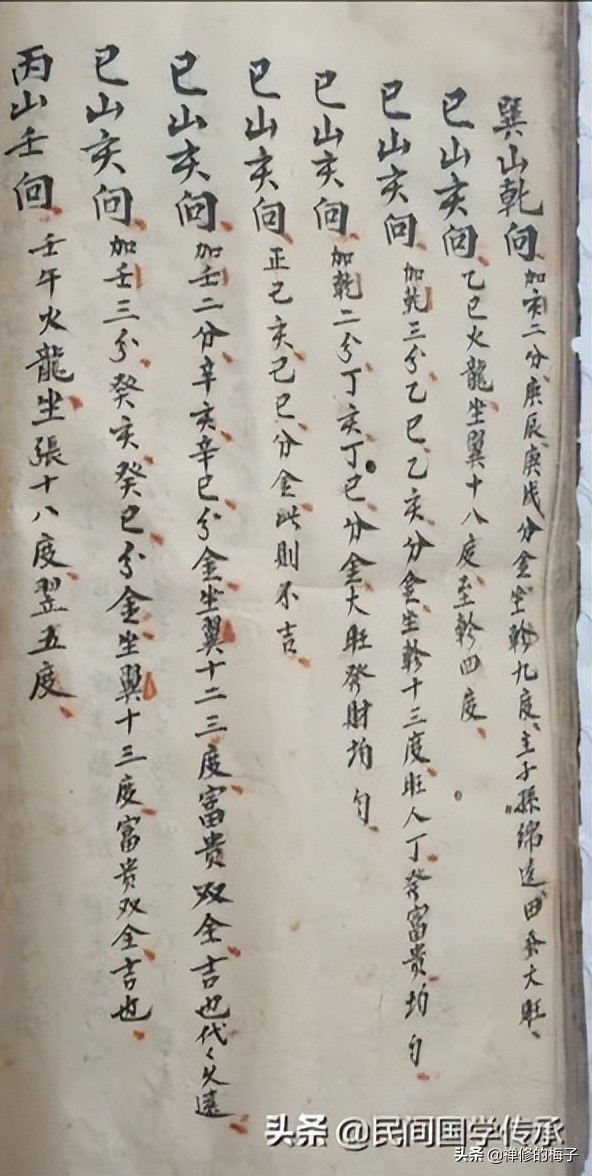 巽山乾向加亥二分庚辰庚戌分金坐軫九度主子孫綿遠田蚕大旺
巳山亥向乙巳火龍坐翼十八度至軫四度
巳山亥向加乾三分乙巳乙亥分金坐軫十三度旺人丁發富貴均勻
巳山亥向加乾二分丁亥丁巳分金大旺發財均勻
巳山亥向正己亥己巳分金此則不吉
巳山亥向加壬二分辛亥辛巳分金坐翼十二三度富貴双全吉也代々久遠
巳山亥向加壬三分癸亥癸巳分金坐翼十三度富貴双全吉也
丙山壬向壬午火龍坐張十八度翌五度
头条@民间国学传承
头条@禅修的梅子